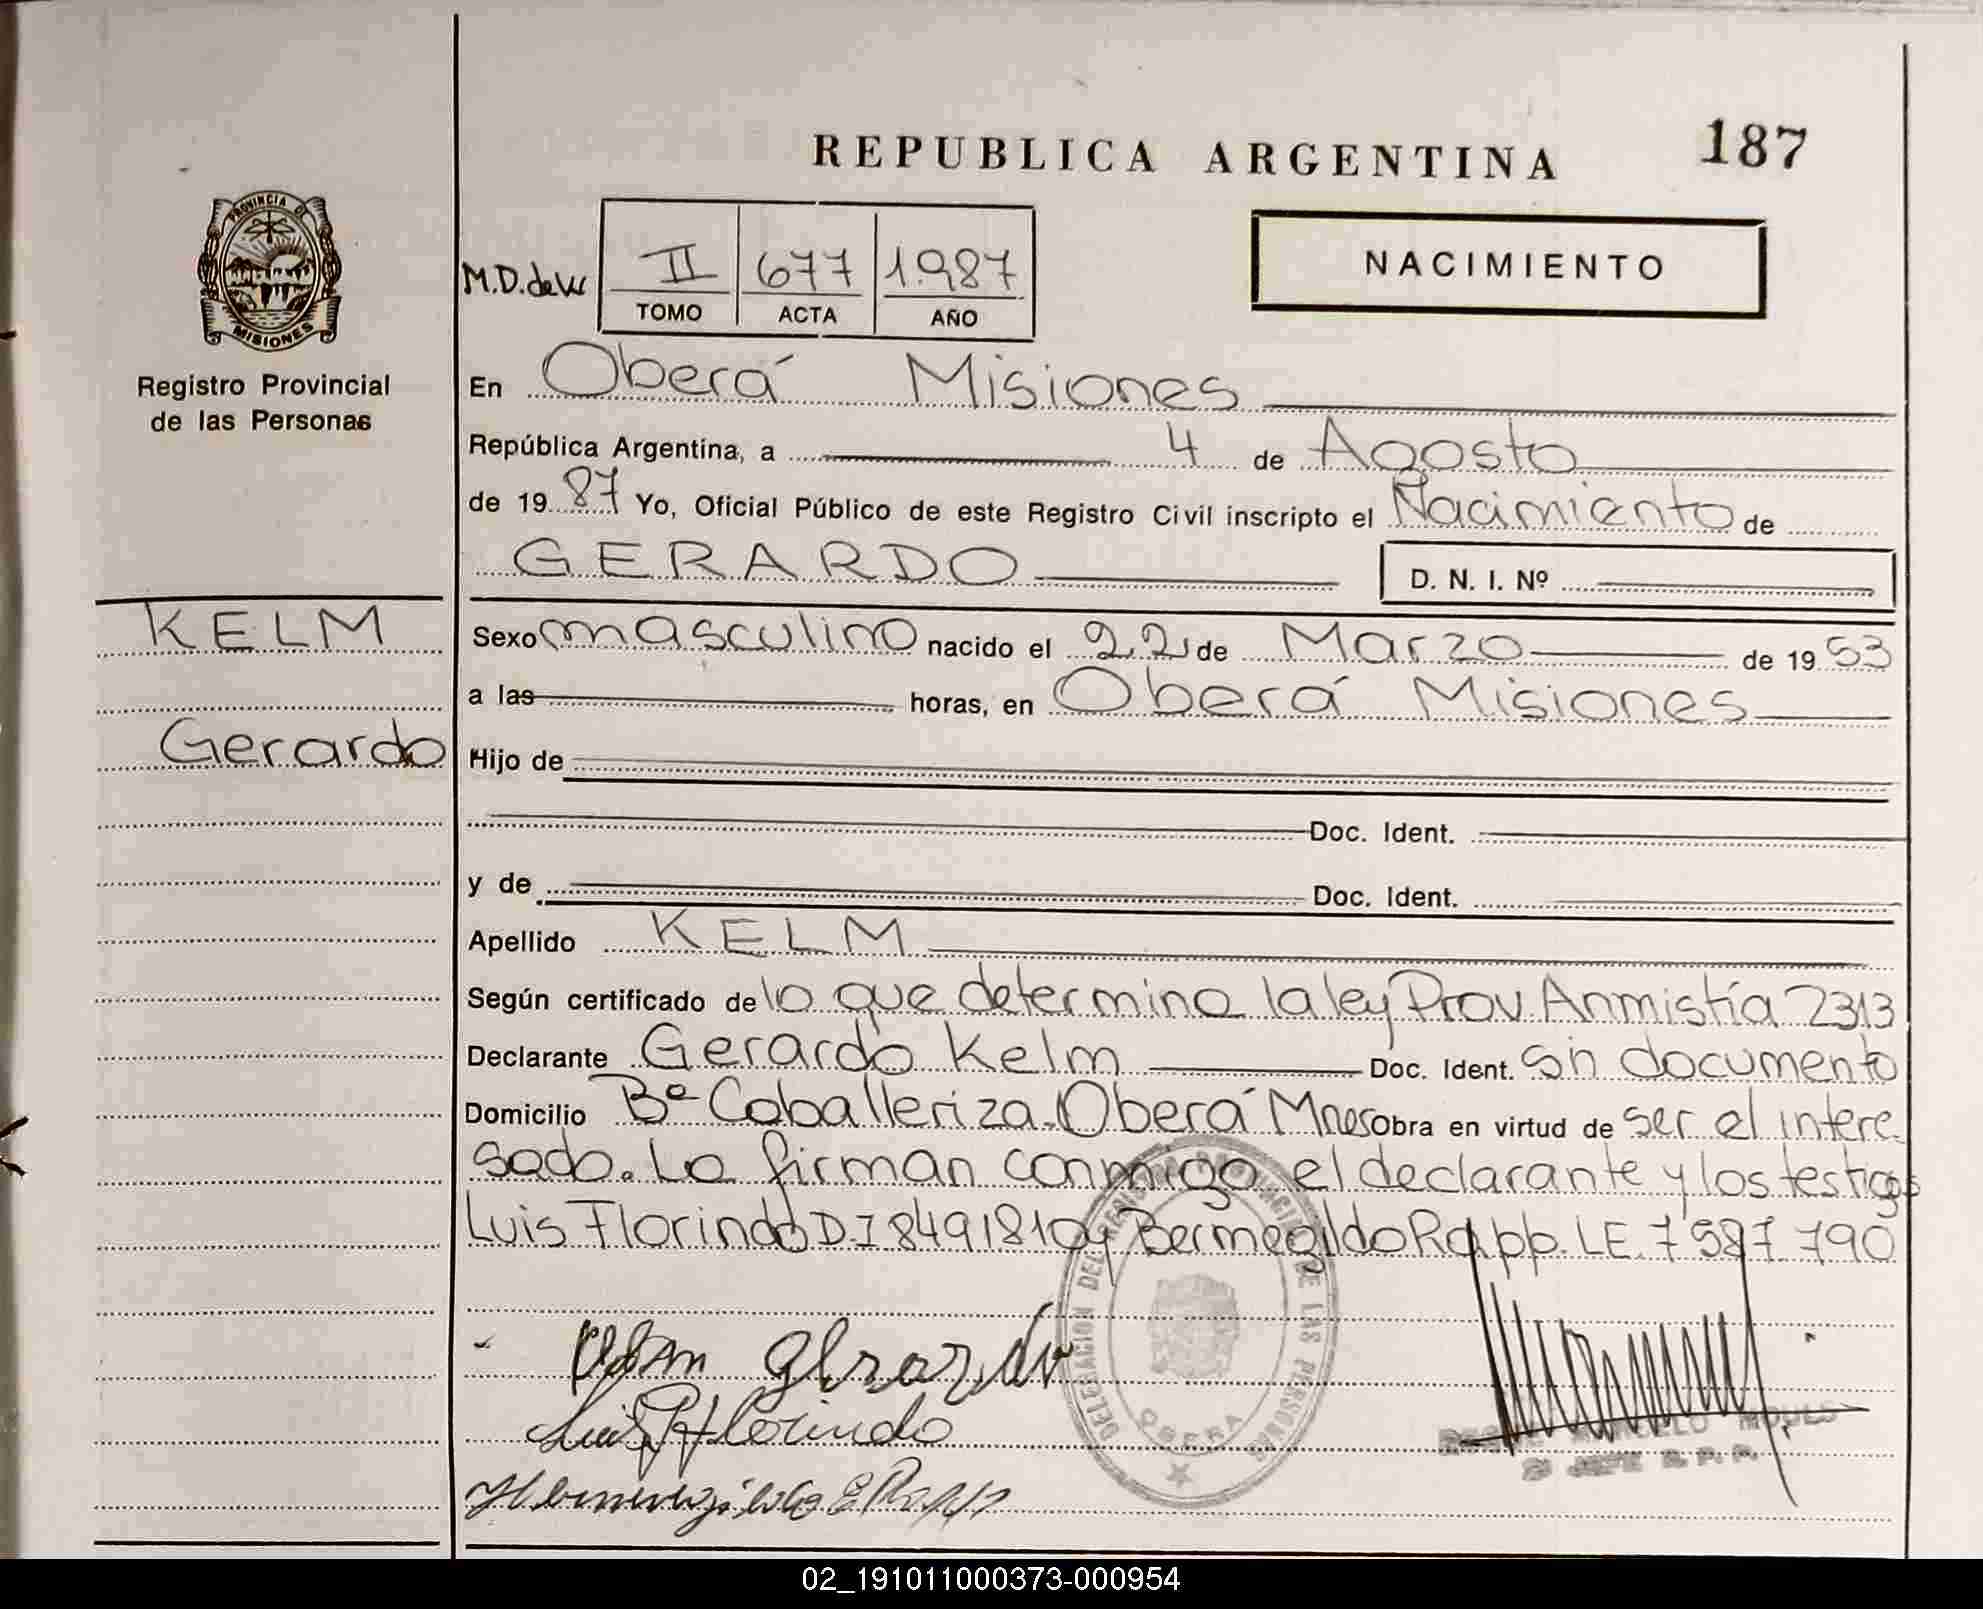 REPUBLICA ARGENTINA
187
PROVINCIA DE
MISIONES
Registro Provincial
de las Personas
M.D. de
II 677 1.987
TOMO ACTA AÑO
NACIMIENTO
En Oberá Misiones
República Argentina, a 4 de Agosto
de 19 87 Yo, Oficial Público de este Registro Civil inscripto el Nacimiento de
GERARDO D. N. I. Nº
KELM
Gerardo
Sexo masculino nacido el 22 de Marzo de 19 53
a las horas, en Oberá Misiones
Hijo de
Doc. Ident.
y de Doc. Ident.
Apellido KELM
Según certificado de lo que determina la ley Prov. Anmistía 2313
Declarante Gerardo Kelm Doc. Ident. sin documento
Domicilio Bº Caballeriza. Oberá Mnes Obra en virtud de ser el intere
sado. Lo firman conmigo el declarante y los testigos
Luis Florindo D.I 8491810 y Bermegildo Rapp. LE. 7 587 790
DELEGACION DEL REGISTRO PROVINCIAL DE LAS PERSONAS
OBERA
Luis Florindo
2º JEFE R. P. P.
02_191011000373-000954